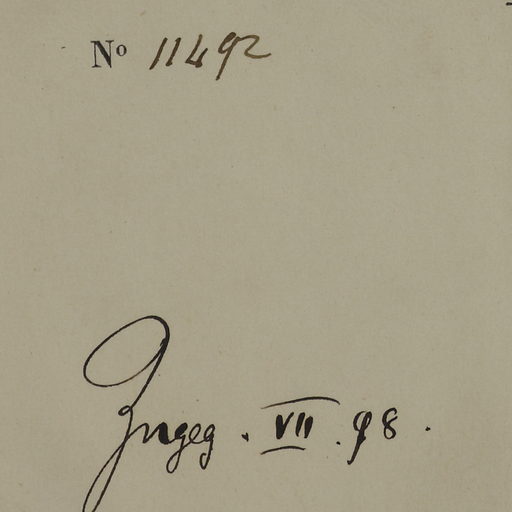 Nº 11492
Zngeg. VII. 98.